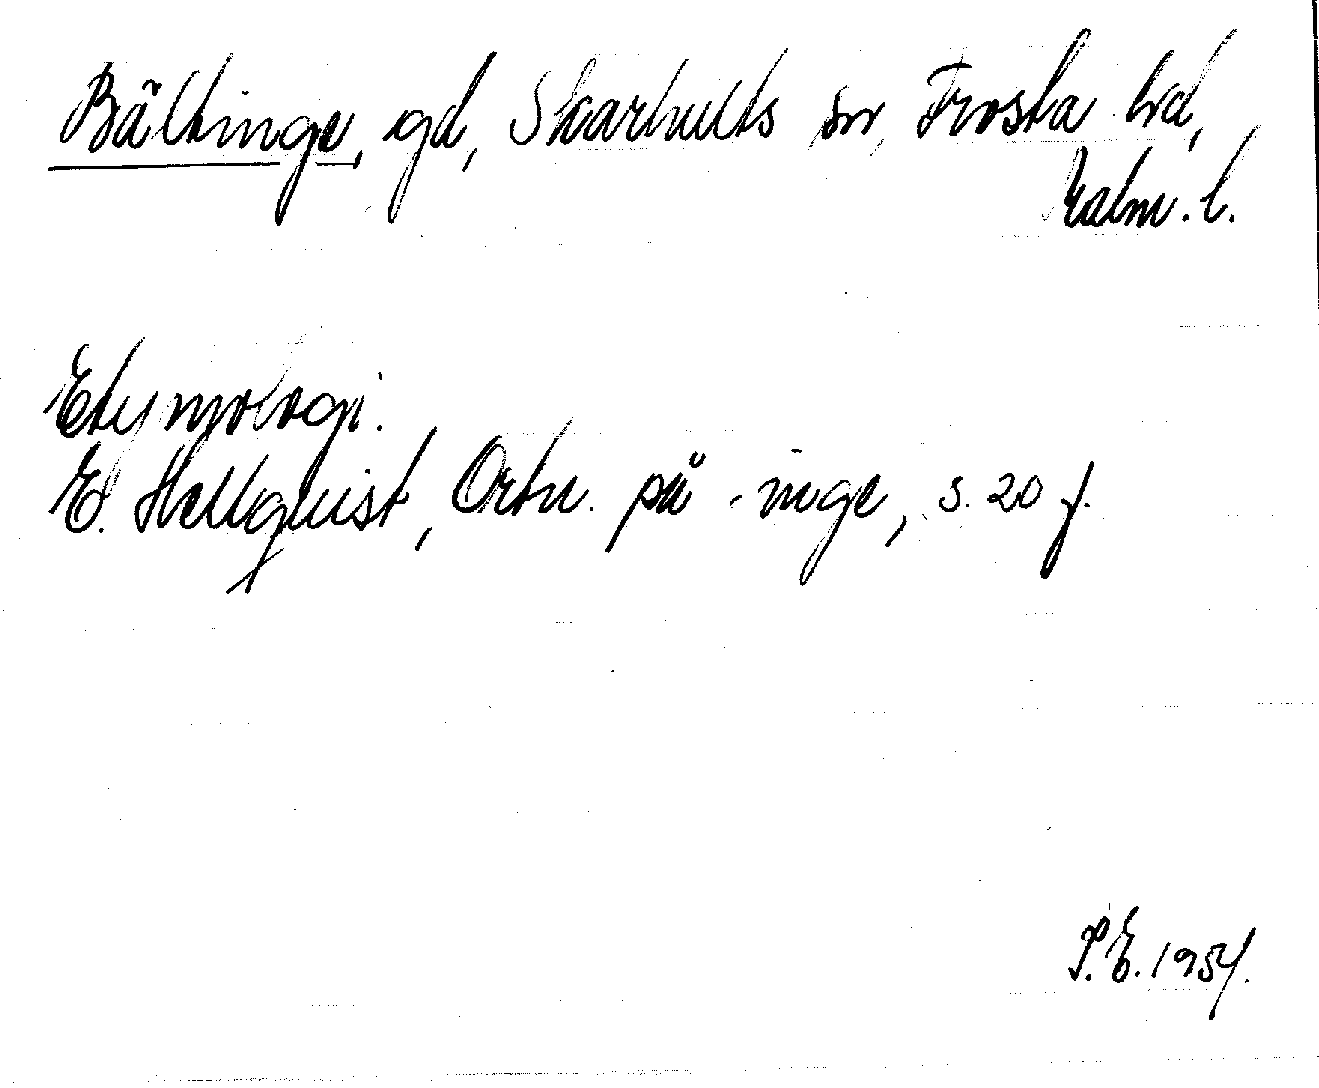 Bältinge, gd, Skarhults sn, Frosta hd,
Malm. l.
Etymologi.
E. Hellquist, Ortn. på -inge, s. 20 f.
P.E. 1954.